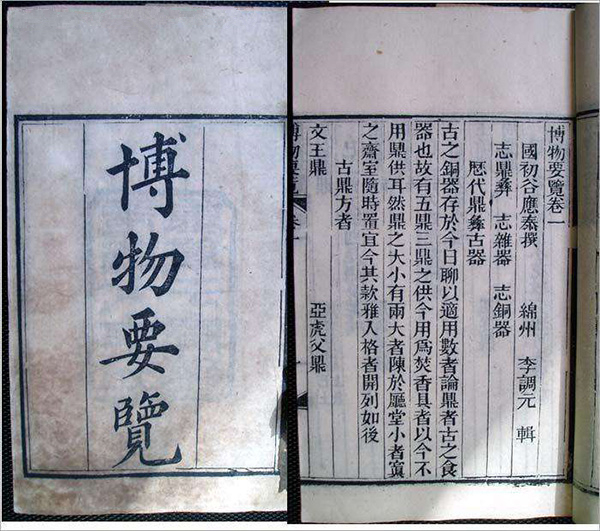 博物要覽
博物要覽卷一
國初谷應泰撰 綿州 李調元 輯
志鼎彝 志雜器 志銅器
厯代鼎彝古器
古之銅器存於今日聊以適用數者論鼎者古之食
器也故有五鼎三鼎之供今用爲焚香具者以今不
用鼎供耳然鼎之大小有兩大者陳於廳堂小者寘
之齋室隨時置宜今其款雅入格者開列如後
古鼎方者
文王鼎 亞虎父鼎